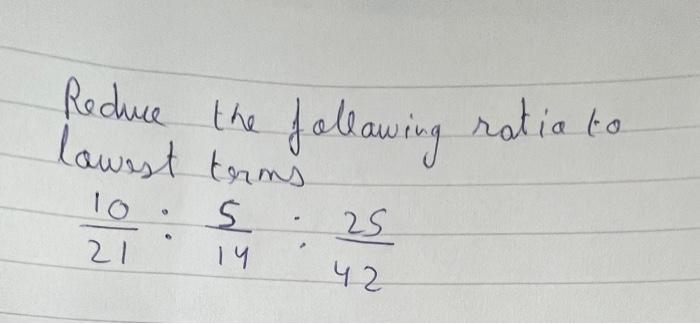 Reduce the following ratio to
lowest terms
10/21 : 5/14 : 25/42